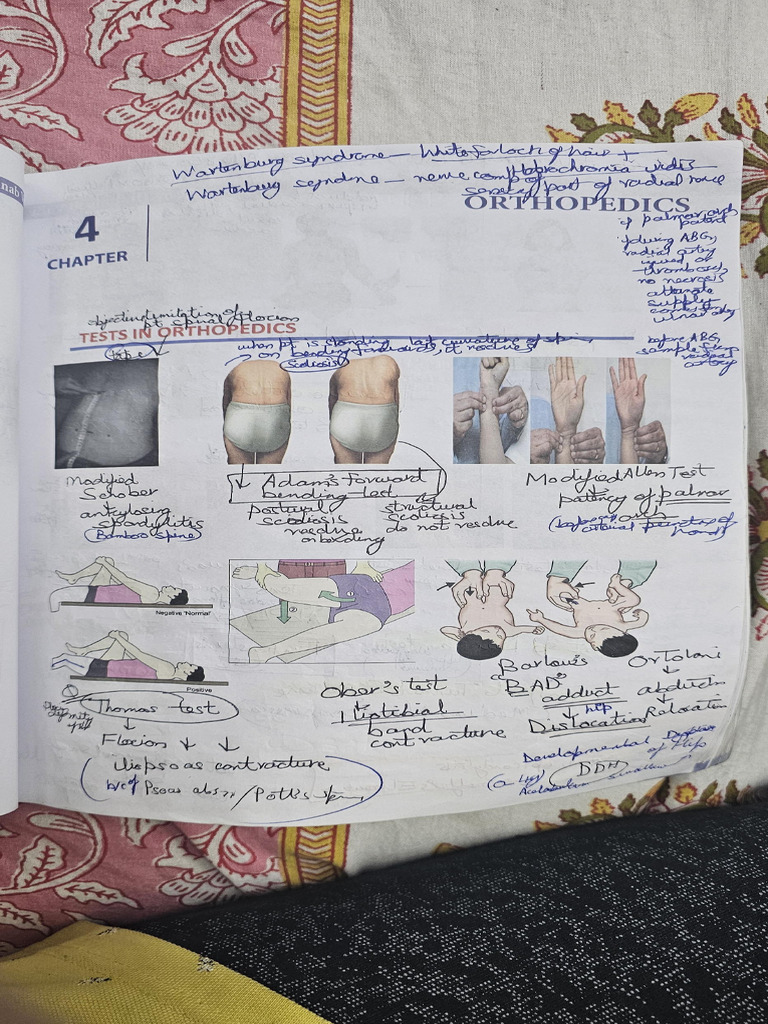 nab
Wartenburg syndrome — White forlock of hair +
Heterochromia iridis
Wartenburg syndrome — nerve comp of
part of radial nerve
ORTHOPEDICS
4
CHAPTER
if palmar arch
patent
during ABG,
radial artery
thrombosed,
no necrosis
alternate
supply
before ABG,
sample from
radial
artery
objective limitation of
pt spinal flexion
TESTS IN ORTHOPEDICS
when pt is standing, lat curvature of spine
on bending forwards, it resolves
Scoliosis
Modified
Schober
↓
ankylosing
spondylitis
(Bamboo spine)
Adam's Forward
bending test
postural
scoliosis
resolve
on bending
structural
scoliosis
do not resolve
Modified Allen Test
patency of palmar
arch
Negative "Normal"
Positive
Thomas test
↓
Flexion ↓ ↓
iliopsoas contracture
b/c of Psoas abs / Pott's spine
Ober's test
↓
Iliotibial
band
contracture
Barlow's
"BAD"
adduct
↓ hip
Dislocation
Ortolani
↓
abduct
↓
Relocation
Developmental
of Hip
DDH